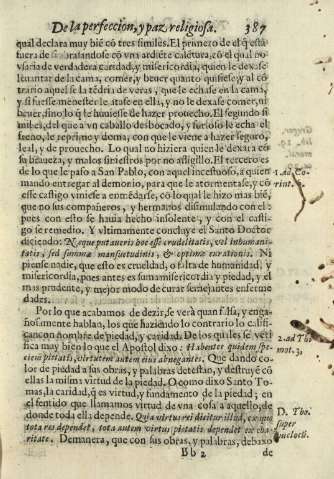 De la perfeccion, y paz religiosa. 387
qual declara muy biẽ cõ tres similes. El primero de el q̃ està
fuera de si tratandose cõ vna ardiẽte calẽtura, cõ el qual no
vsaria de verdadera caridad, y misericordia, quien le dexase
leuantar de la cama, comer, y beuer quanto quisiese, y al cõ
trario aquel se la tẽdria de veras, que le echase en la cama,
y si fuesse menester le atase en ella, y no le dexase comer, ni
beuer, sino lo q̃ le huuiese de hazer prouecho. El segundo si
mil es, del que a vn caballo desbocado, y furioso le echa el
freno, le reprime, y doma, con que le viene a hazer seguro,
leal, y de prouecho. Lo qual no hiziera quien le dexara cõ
su braueza, y malos siniestros por no afligillo. El tercero es
de lo que le paso a San Pablo, con aquel incestuoso, a quien
mando entregar al demonio, para que le atormentase, y cõ
este castigo viniese a enmẽdarse, cõ lo qual le hizo mas biẽ,
que no sus compañeros, y hermanos disimulando con el:
pues con esto se hauia hecho insolente, y con el casti-
go se remedio. Y vltimamente concluye el Santo Doctor
diciendo: Neque putaueris hoc esse crudelitatis, vel inhumani-
tatis, sed summæ mansuetudinis, & optimæ curationis. Ni
piense nadie, que esto es crueldad, o falta de humanidad, y
misericordia, pues antes es suma misericordia y piedad, y el
mas prudente, y mejor modo de curar semejantes enferme
dades.
Por lo que acabamos de dezir, se verà quan falsa, y enga-
ñosamente hablan, los que haziendo lo contrario lo califi
can con nombre de piedad, y caridad. De los quales se ve
rifica muy bien lo que el Apostol dixo: Habentes quidem spe
ciem pietatis, virtutem autem eius abnegantes. Que dando co-
lor de piedad a sus obras, y palabras detestan, y destruyẽ cõ
ellas la misma virtud de la piedad. O como dixo Santo To-
mas, la caridad, q̃ es virtud, y fundamento de la piedad; en
el sentido que llamamos virtud de vna cosa a aquello, de
donde toda ella depende. Quia virtus rei dicitur illud, ex quo
tota res dependet, tota autem virtus pietatis dependet ex cha-
ritate. Demanera, que con sus obras, y palabras, debaxo
Bb 2 de
1. ad Co-
rint. 5.
2. ad Thi
mot. 3.
D. Tho.
super